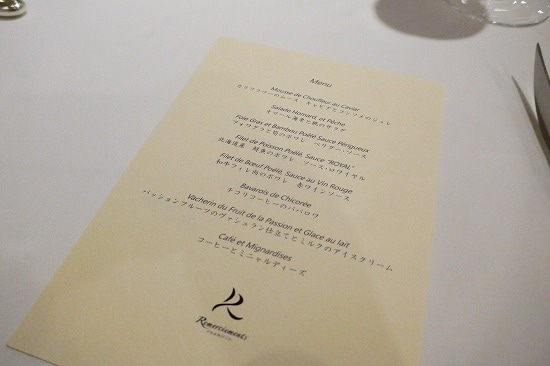 Menu
Mousse de Choufleur au Caviar
カリフラワーのムース キャビアとコンソメのジュレ
Salade Homard, et Pêche
オマール海老と桃のサラダ
Foie Gras et Bambou Poêlé Sauce Périgueux
フォワグラと筍のポワレ ペリグー・ソース
Filet de Poisson Poêlé, Sauce "ROYAL"
北海道産 鮮魚のポワレ ソース・ロワイヤル
Filet de Bœuf Poêlé, Sauce au Vin Rouge
和牛フィレ肉のポワレ 赤ワインソース
Bavarois de Chicorée
チコリコーヒーのババロワ
Vacherin du Fruit de la Passion et Glace au lait
パッションフルーツのヴァシュラン仕立てとミルクのアイスクリーム
Café et Mignardises
コーヒーとミニャルディーズ
Remerciements